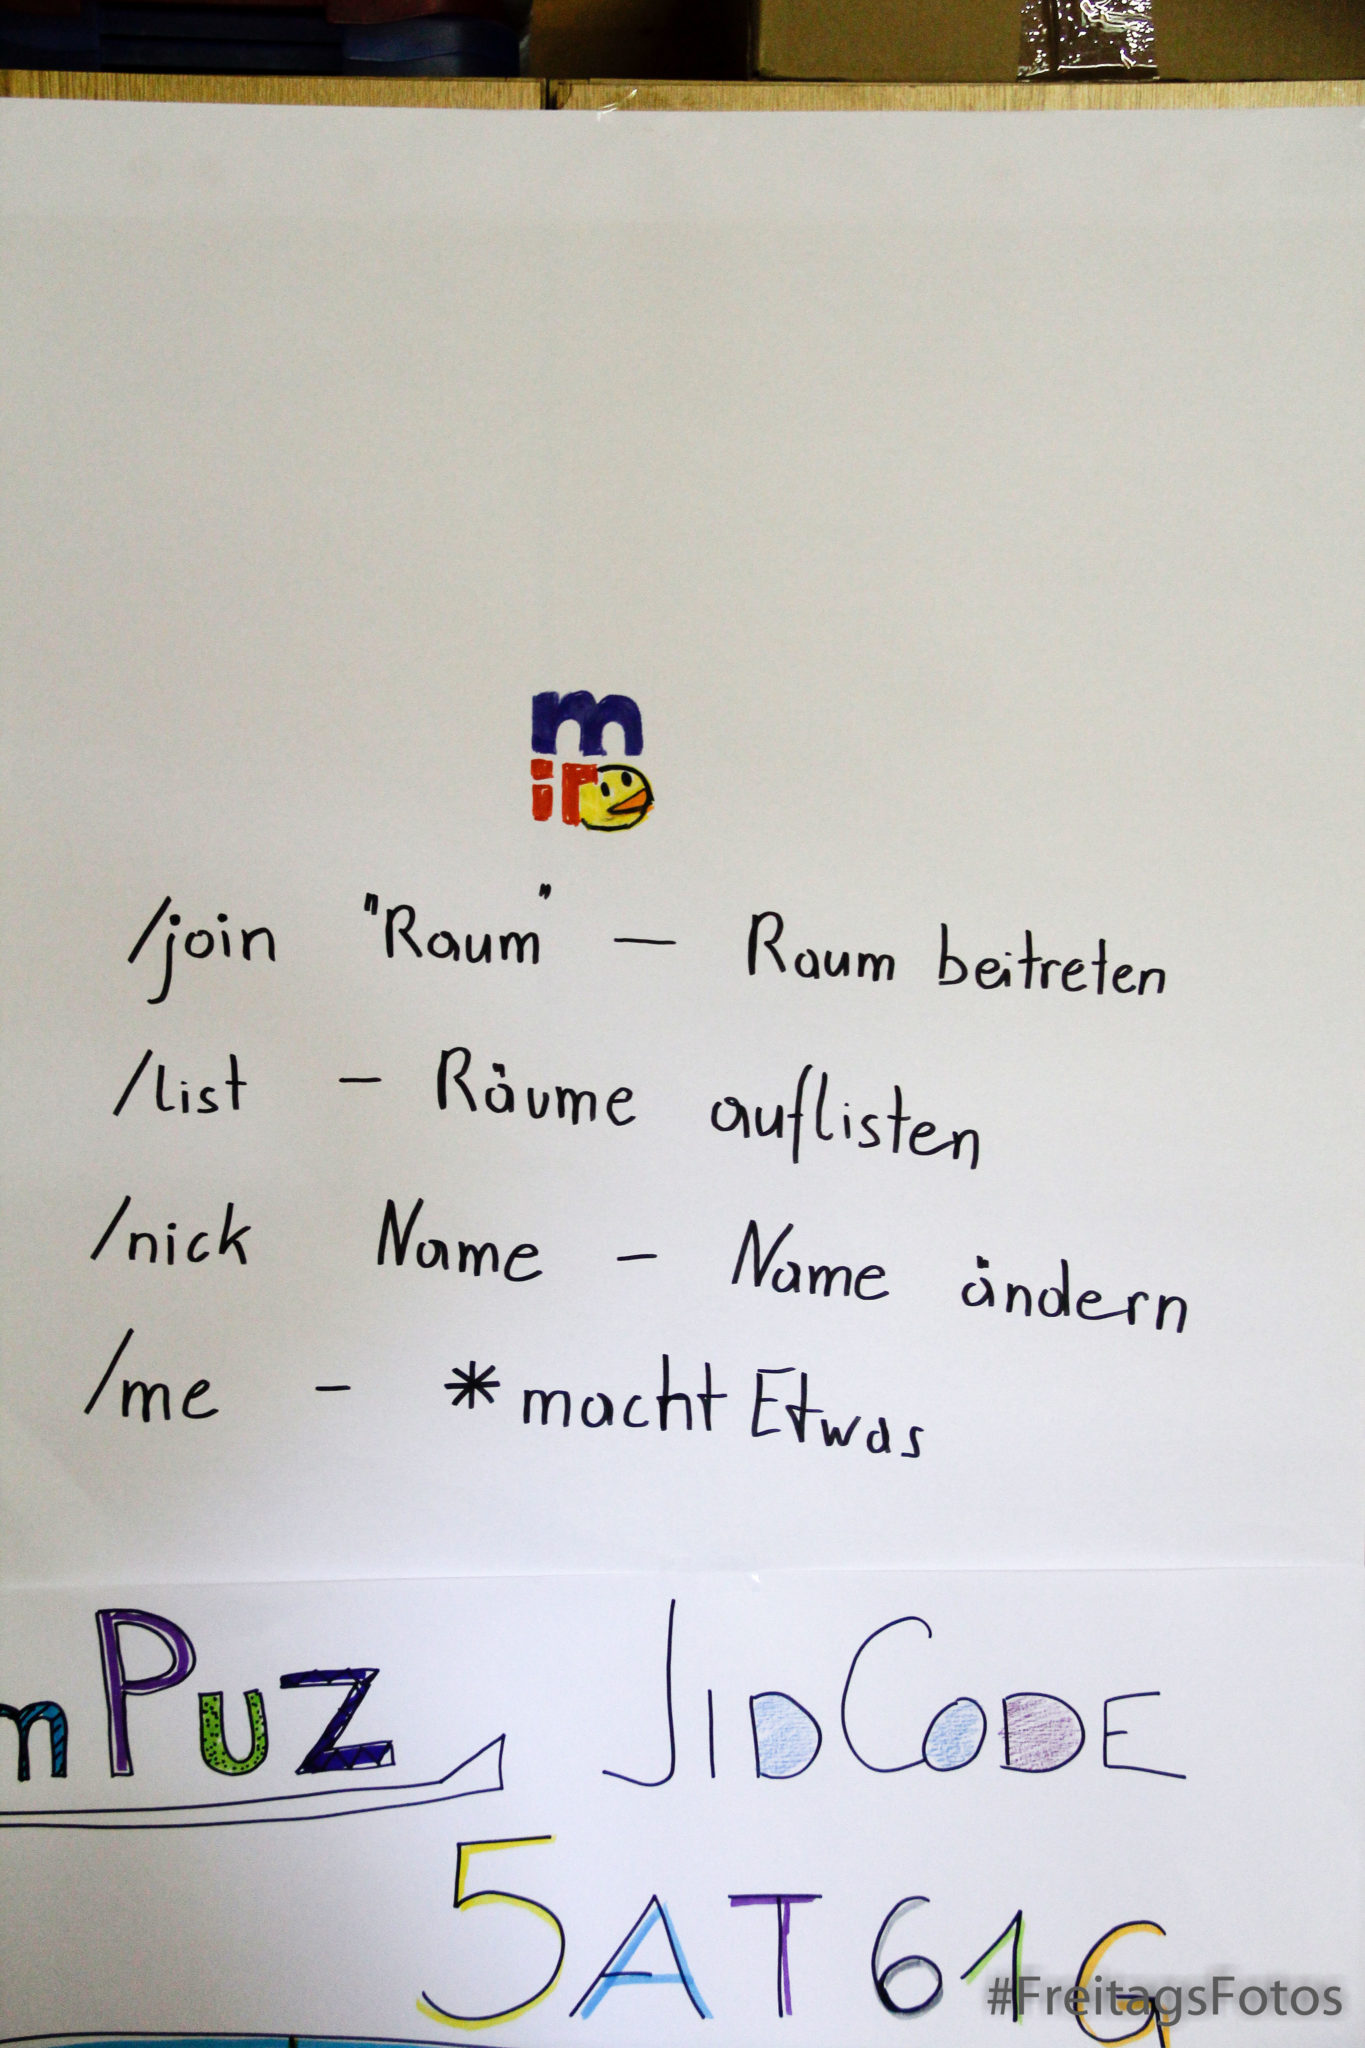 m
ir
/join "Raum" — Raum beitreten
/list – Räume auflisten
/nick Name – Name ändern
/me – *macht Etwas
mPuz JIDCODE
5AT61G
#FreitagsFotos